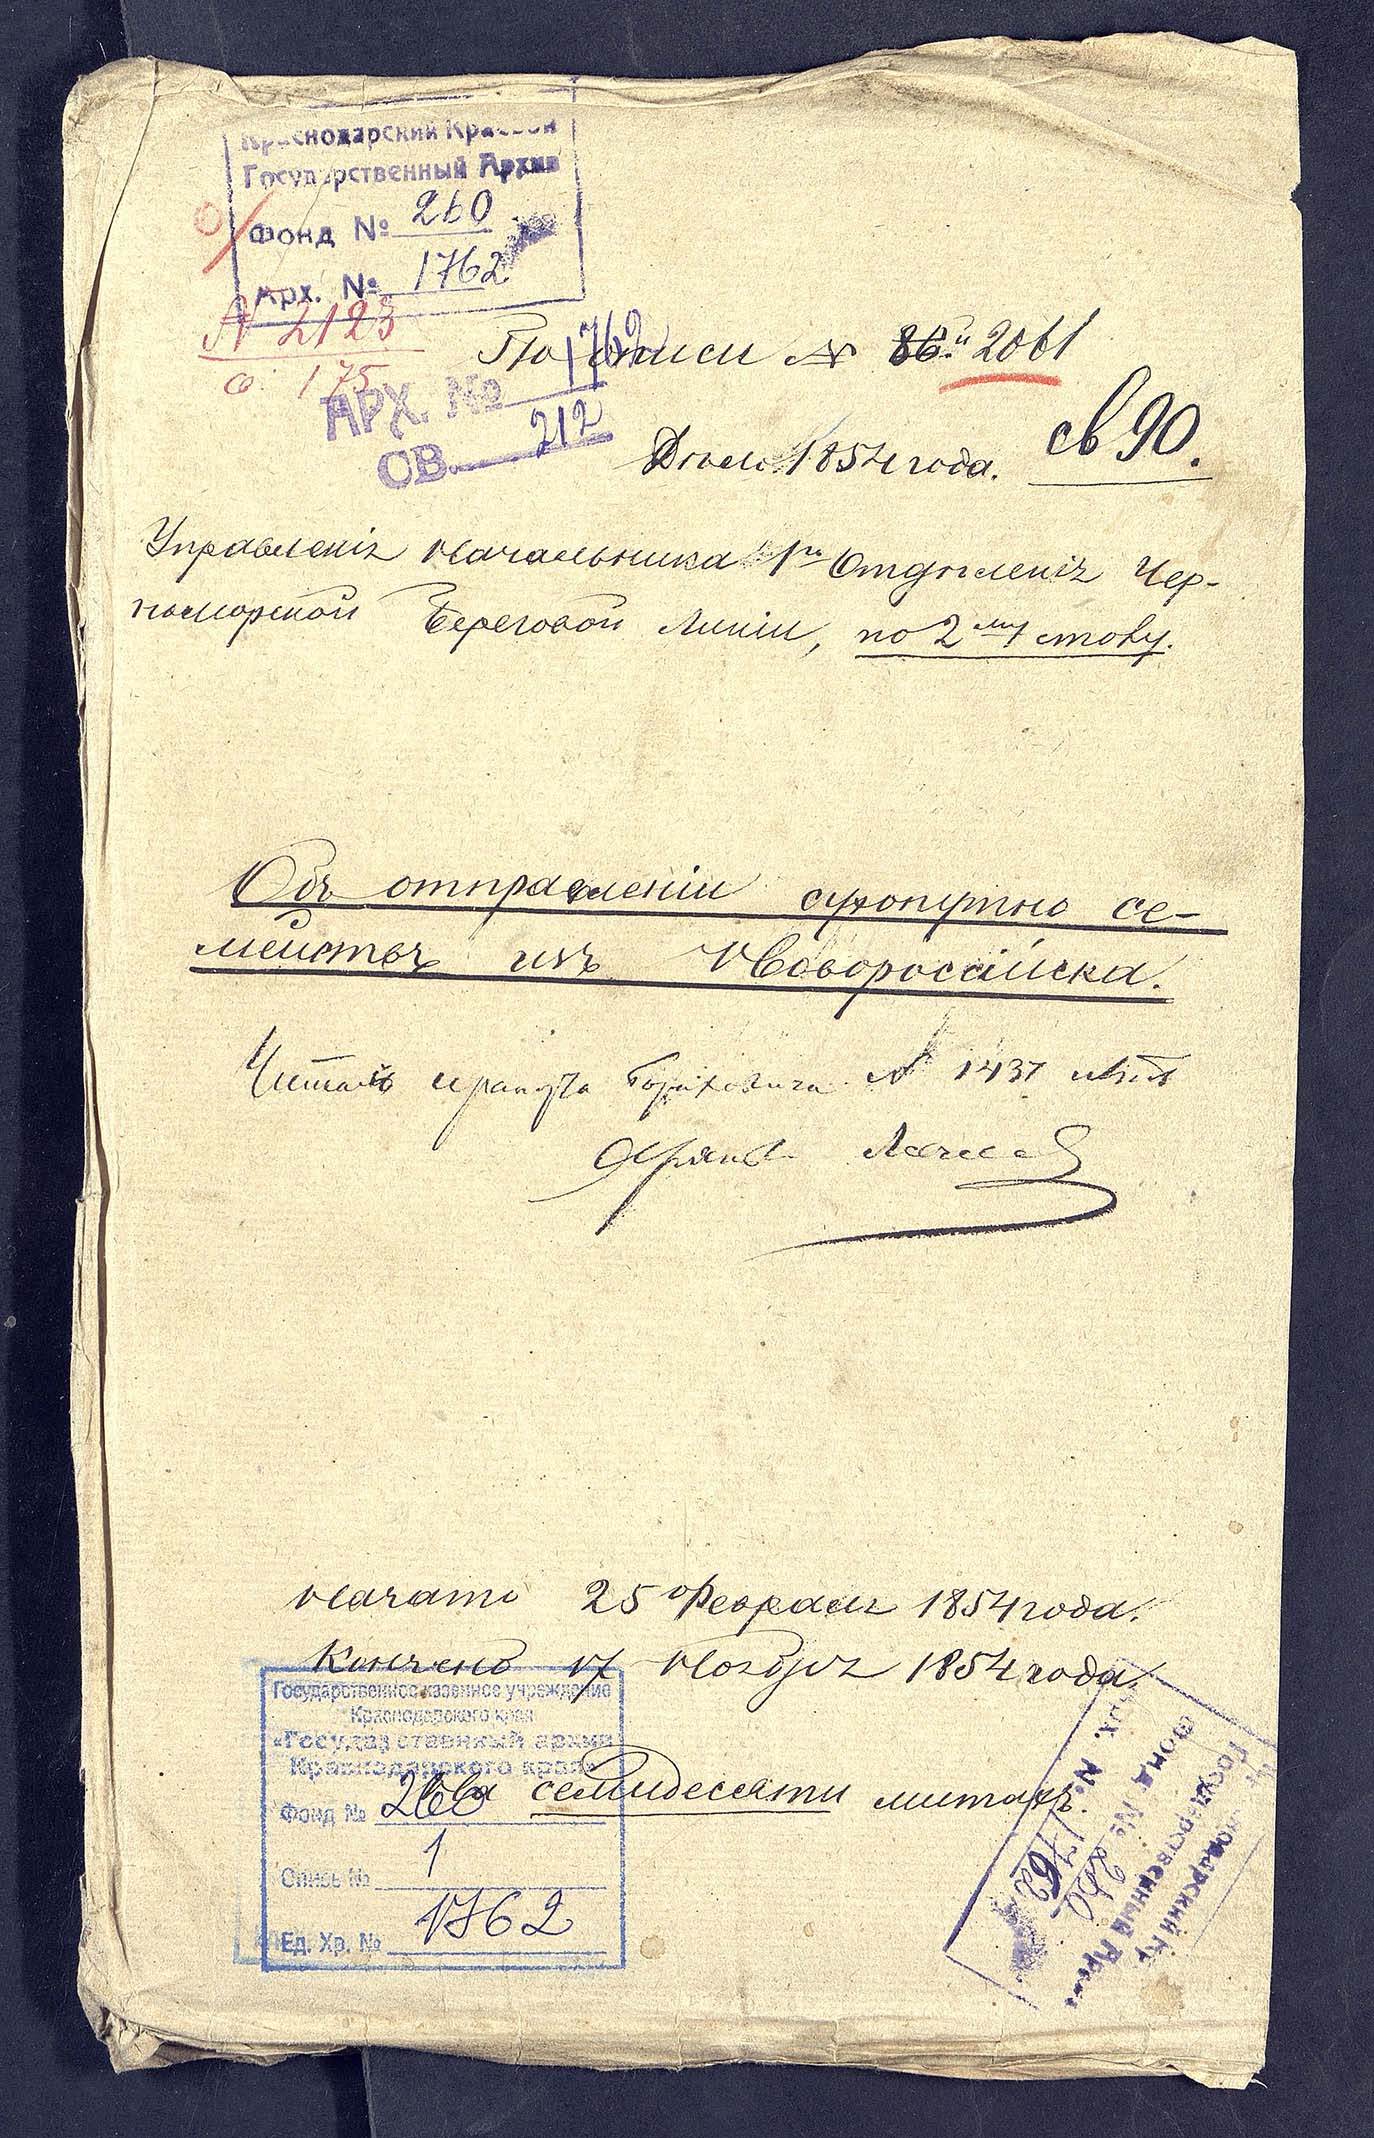 Краснодарский Краевой
Государственный Архив
Фонд № 260
Арх. № 1762
№ 2123
175
По описи № 86. и 2061
АРХ. № 1762
СВ. 212
Дѣло 1854 года.
св 90.
Управленія Начальника 1го Отдѣленія Чер-
номорской Береговой Линіи, по 2му столу.
Объ отправленіи сухопутно се-
мействъ изъ Новороссійска.
Читалъ № 1437
Начато 25 Февраля 1854 года.
Кончено 17 Ноября 1854 года.
Государственное казенное учреждение
Краснодарского края
«Государственный архив
Краснодарского края»
На семидесяти листахъ.
Фонд № 260
Опись № 1
Ед. Хр. № 1762
Краснодарский Кр
Государственный Архив
Фонд № 260
Арх. № 1762